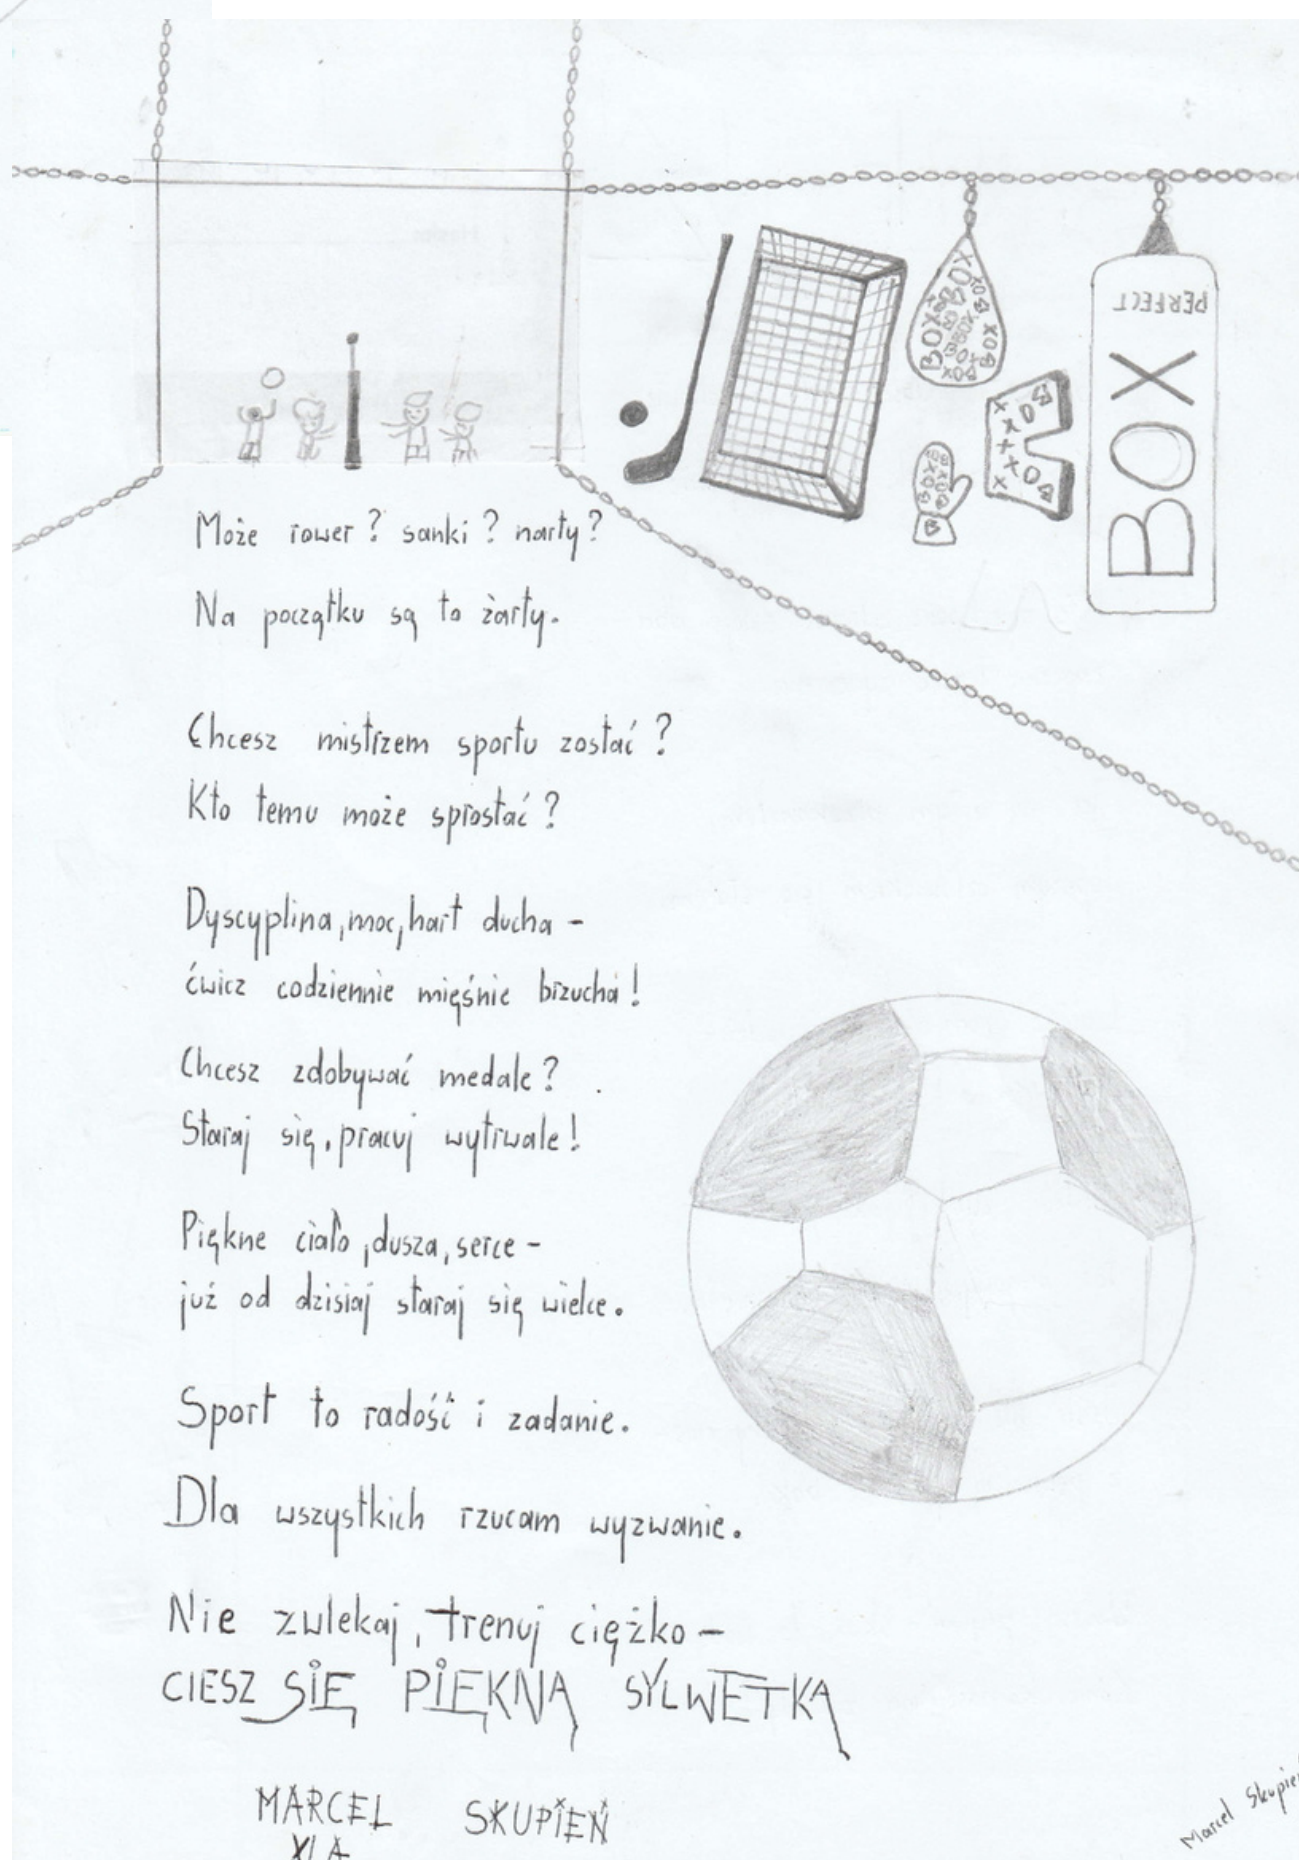 PERFECT
BOX
Może rower? sanki? narty?
Na początku są to żarty.
Chcesz mistrzem sportu zostać?
Kto temu może sprostać?
Dyscyplina, moc, hart ducha -
ćwicz codziennie mięśnie brzucha!
Chcesz zdobywać medale?
Staraj się, pracuj wytrwale!
Piękne ciało, dusza, serce -
już od dzisiaj staraj się wielce.
Sport to radość i zadanie.
Dla wszystkich rzucam wyzwanie.
Nie zwlekaj, trenuj ciężko -
CIESZ SIĘ PIĘKNĄ SYLWETKĄ
MARCEL SKUPIEŃ
Marcel Skupień